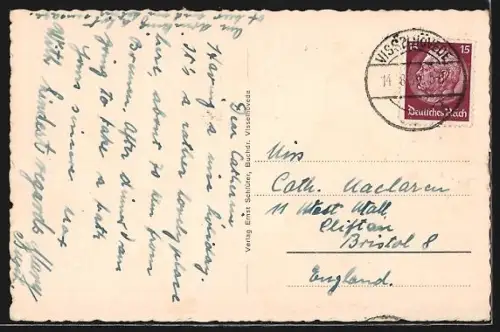 Dear Catherine
Having a nice holiday.
It's a rather lonely place
here, about 70 km from
Bremen. After dinner I am
going to take a bath
Yours sincere Max
With kindest regards
Verlag Ernst Schlüter, Buchdr. Visselhövede
VISSELHÖVEDE
15
Deutsches Reich
Miss
Cath. Maclaren
11 West Mall,
Clifton
Bristol 8
England.